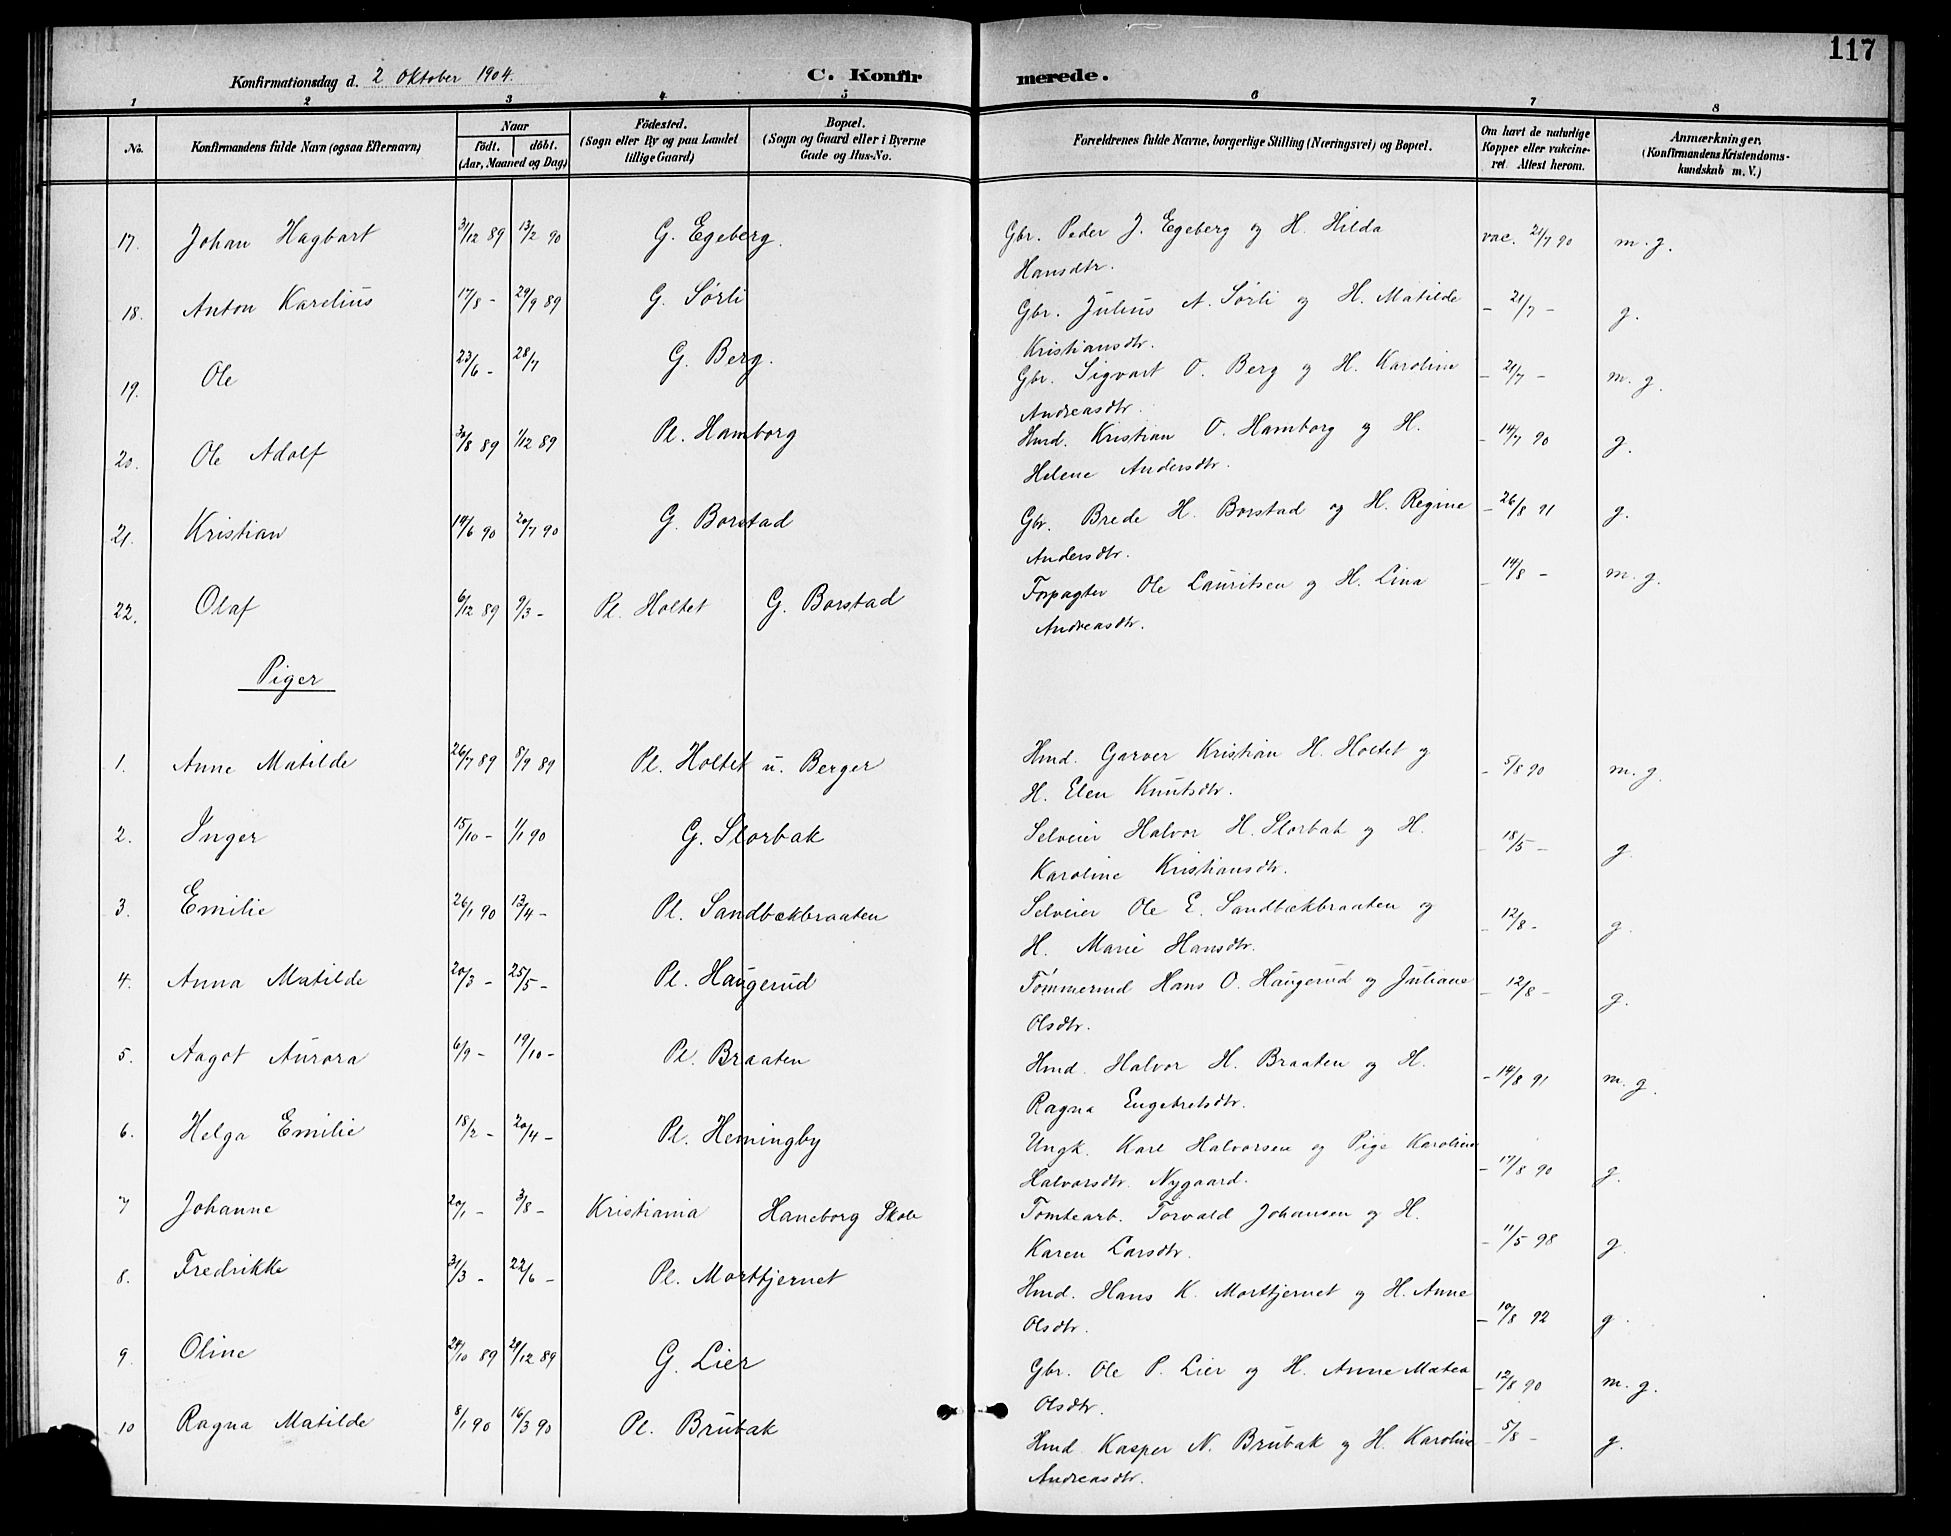 117
Konfirmationsdag d. 2 Oktober 1904. C. Konfirmerede.
1 2 3 4 5 6 7 8
No. Konfirmandens fulde Navn (ogsaa Efternavn) Naar födt. döbt. (Aar, Maaned og Dag) Födested. (Sogn eller By og paa Landet tillige Gaard) Bopæl. (Sogn og Gaard eller i Byerne Gade og Hus-No. Forældrenes fulde Navne, borgerlige Stilling (Næringsvei) og Bopæl. Om havt de naturlige Kopper eller vakcineret. Attest herom. Anmærkninger. (Konfirmandens Kristendomskundskab m. V.)
17. Johan Hagbart 31/12 89 13/2 90 G. Egeberg. Gbr. Peder J. Egeberg og H. Hilda vac. 21/7 90 m. g.
Hansdtr.
18. Anton Karelius 17/8 - 29/9 89 G. Sørli Gbr. Julius A. Sørli og H. Matilde - 21/7 - g.
Kristiansdtr.
19. Ole 23/6 - 28/7 G. Berg. Gbr. Sigvart O. Berg og H. Karoline - 21/7 - m. g.
Andreasdtr.
20. Ole Adolf 30/8 89 1/12 89 Pl. Hamborg Hmd. Kristian O. Hamborg og H. - 14/7 90 g.
Helene Andersdtr.
21. Kristian 14/6 90 20/7 90 G. Borstad Gbr. Brede H. Borstad og H. Regine - 26/8 91 g.
Andersdtr.
22. Olaf 6/12 89 9/3 - Pl. Holtet G. Borstad Forpagter Ole Lauritsen og H. Lina - 14/8 - m. g.
Andreasdtr.
Piger
1. Anne Matilde 26/7 89 8/9 89 Pl. Holtet u. Berger Hmd. Garver Kristian H. Holtet og - 5/8 90 m. g.
H. Elen Knutsdtr.
2. Inger 15/10 - 1/1 90 G. Slorbak Selveier Halvor H. Slorbak og H. - 18/5 - g.
Karoline Kristiansdtr.
3. Emilie 26/1 90 13/4 - Pl. Sandbækbraaten Selveier Ole E. Sandbækbraaten og - 12/8 - g.
H. Marie Hansdtr.
4. Anna Matilde 20/3 - 25/5 - Pl. Haugerud Tømmermd Hans O. Haugerud og Juliane - 12/8 - g.
Olsdtr.
5. Aagot Aurora 6/9 - 19/10 - Pl. Braaten Hmd. Halvor H. Braaten og H. - 14/8 91 m. g.
Ragna Engebretsdtr.
6. Helga Emilie 18/2 - 20/4 - Pl. Hemingby Ungk. Karl Halvorsen og Pige Karoline - 17/8 90 g.
Halvorsdtr. Nygaard.
7 Johanne 20/1 - 3/8 - Kristiania Haneborg Skole Tomtearb. Torvald Johansen og H. - 11/5 98 g.
Karen Larsdtr.
8. Fredrikke 31/3 - 22/6 - Pl. Morttjernet Hmd. Hans K. Morttjernet og H. Anne - 10/8 92 g.
Olsdtr.
9. Oline 24/10 89 29/12 89 G. Lier Gbr. Ole P. Lier og H. Anne Matea - 12/8 90 m. g.
Olsdtr.
10 Ragna Matilde 8/1 90 16/3 90 Pl. Brubak Hmd. Kasper N. Brubak og H. Karoline - 5/8 - g.
Andreasdtr.